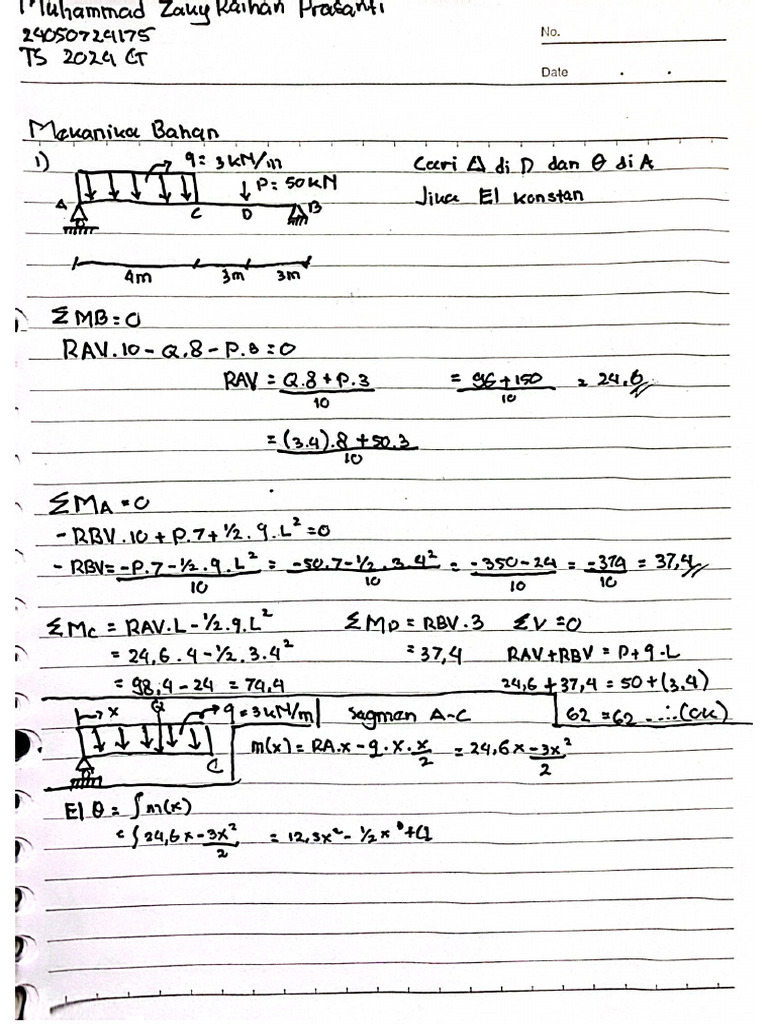 Muhammad Zaky Raihan Prasanti
24050724175
TS 2024 G
No.
Date
Mekanika Bahan
1)
q = 3 kN/m
P = 50 kN
A
C
D
B
4m
3m
3m
Cari Δ di D dan θ di A
Jika EI konstan
ΣMB = 0
RAV.10 - Q.8 - P.3 = 0
RAV = Q.8 + P.3 / 10 = 96 + 150 / 10 = 24,6
= (3.4).8 + 50.3 / 10
ΣMA = 0
- RBV.10 + P.7 + 1/2.q.L² = 0
- RBV = -P.7 - 1/2.q.L² / 10 = -50.7 - 1/2.3.4² / 10 = -350 - 24 / 10 = -374 / 10 = 37,4
ΣMC = RAV.L - 1/2.q.L²
= 24,6.4 - 1/2.3.4²
= 98,4 - 24 = 74,4
ΣMD = RBV.3
= 37,4
ΣV = 0
RAV + RBV = P + q.L
24,6 + 37,4 = 50 + (3.4)
62 = 62 ...∴ (OK)
x
Q
q = 3 kN/m
C
Segmen A-C
m(x) = RA.x - q.x.x/2 = 24,6x - 3x²/2
EI θ = ∫ m(x)
= ∫ 24,6x - 3x²/2 = 12,3x² - 1/2x³ + C1